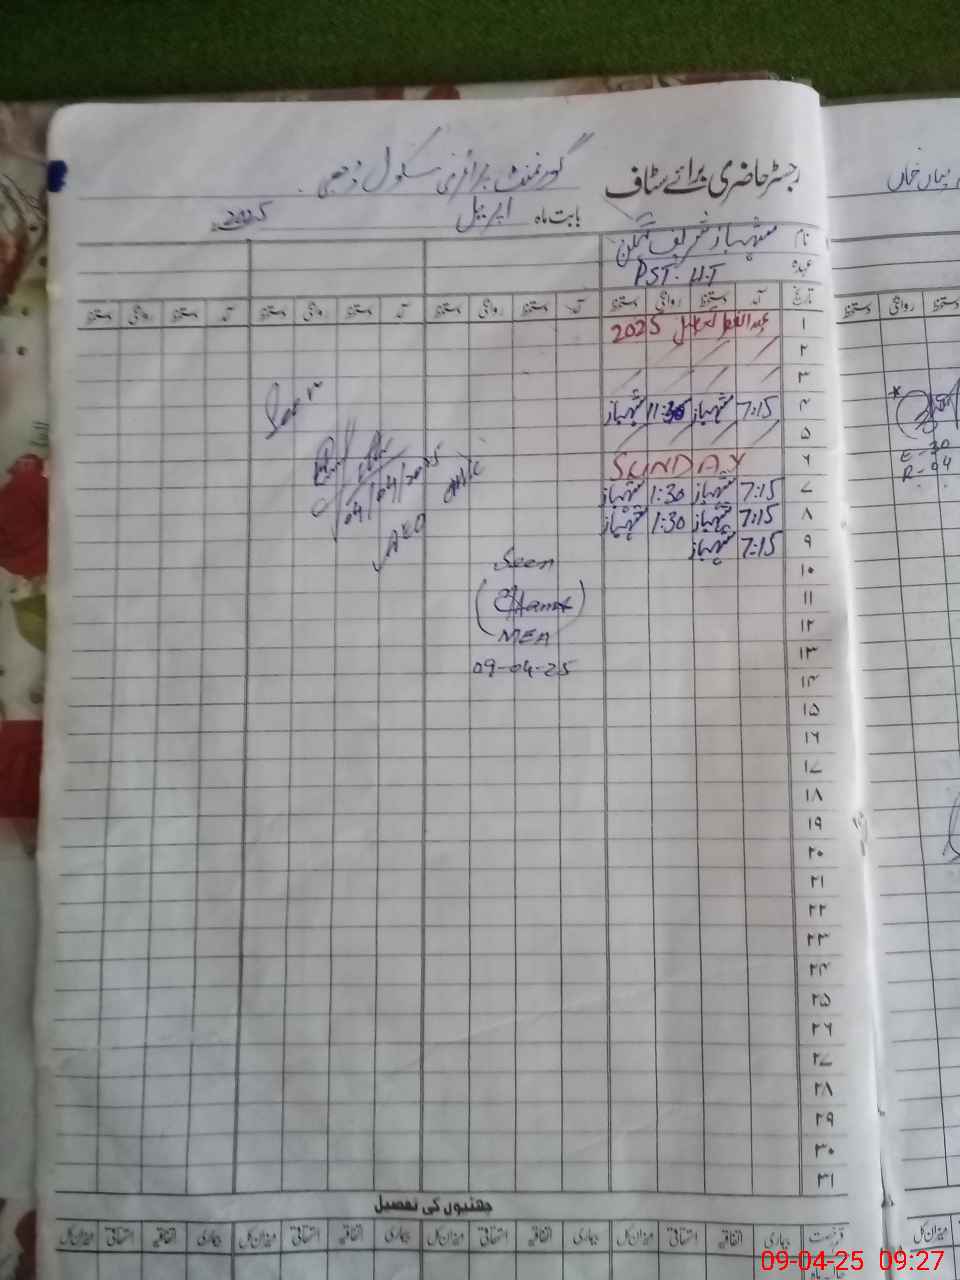 رجسٹر حاضری برائے سٹاف گورنمنٹ پرائمری سکول
بابت ماہ اپریل 2025
نام شہباز شریف
عہدہ PST. H.T
تاریخ آمد دستخط روانگی دستخط آمد دستخط روانگی دستخط آمد دستخط روانگی دستخط آمد دستخط روانگی دستخط
۱ عید الفطر 2025
۲
۳
۴ 7:15 شہباز 11:30 شہباز
۵
۶ SUNDAY
۷ 7:15 شہباز 1:30 شہباز
۸ 7:15 شہباز 1:30 شہباز
۹ 7:15 شہباز
۱۰
۱۱
۱۲
۱۳
۱۴
۱۵
۱۶
۱۷
۱۸
۱۹
۲۰
۲۱
۲۲
۲۳
۲۴
۲۵
۲۶
۲۷
۲۸
۲۹
۳۰
۳۱
Seen
AEO
Seen
MEA
09-04-25
چھٹیوں کی تفصیل
بیماری اتفاقیہ استحقاقی میزان کل بیماری اتفاقیہ استحقاقی میزان کل بیماری اتفاقیہ استحقاقی میزان کل بیماری اتفاقیہ استحقاقی میزان کل
دستخط روانگی دستخط
E-30
R-04
میزان کل
09-04-25 09:27